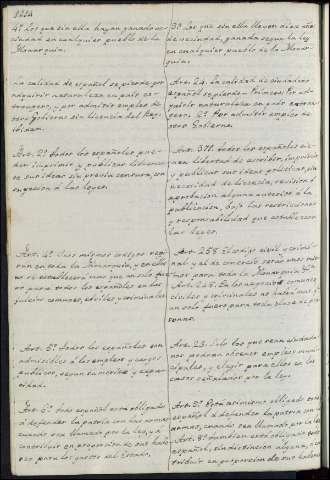 4º Los que sin ella hayan ganado ve-
cindad en cualquier pueblo de la
Monarquía.
La calidad de español se pierde por
adquirir naturaleza en país es-
tranjero, y por admitir empleo de
otro Gobierno sin licencia del Rey.
Art. 2º Todos los españoles pue-
den imprimir y publicar libremen-
te sus ideas sin previa censura, con
sugecion a las leyes.
Art. 4º Unos mismos códigos regi-
rán en toda la Monarquía, y en ellos
no se establecerá mas que un solo fue-
ro para todos los españoles en los
juicios comunes, civiles y criminales.
Art. 5º Todos los españoles son
admisibles a los empleos y cargos
públicos, segun su mérito y capa-
cidad.
Art. 6º Todo español está obligado
a defender la patria con las armas
cuando sea llamado por la ley, y a
contribuir en proporcion de sus habe-
res para los gastos del Estado.
3º Los que sin ella lleven diez años
de vecindad, ganada segun la ley
en cualquier pueblo de la Monar-
quía.
Art. 24. La calidad de ciudadano
español se pierde = Primero: Por ad-
quirir naturaleza en país estran-
gero. 2º Por admitir empleo de
otro Gobierno.
Art. 371. Todos los españoles tie-
nen libertad de escribir, imprimir
y publicar sus ideas políticas, sin
necesidad de licencia, revision ó
aprobacion alguna anterior a la
publicacion, bajo las restricciones
y responsabilidad que establezcan
las leyes.
Art. 258. El código civil y crimi-
nal y el de comercio serán unos mis-
mos para toda la Monarquía
Art. 248. En los negocios comunes
civiles y criminales no habrá mas q.e
un solo fuero para toda clase de per-
sonas.
Art. 23. Solo los que sean ciudada-
nos podrán obtener empleos muni-
cipales, y elegir para ellos en los
casos señalados por la ley.
Art. 9º Está asimismo obligado todo
español a defender la patria con las
armas, cuando sea llamado por la ley
Art. 8º Tambien está obligado todo
español, sin distincion alguna, a con-
tribuir en proporcion de sus haberes